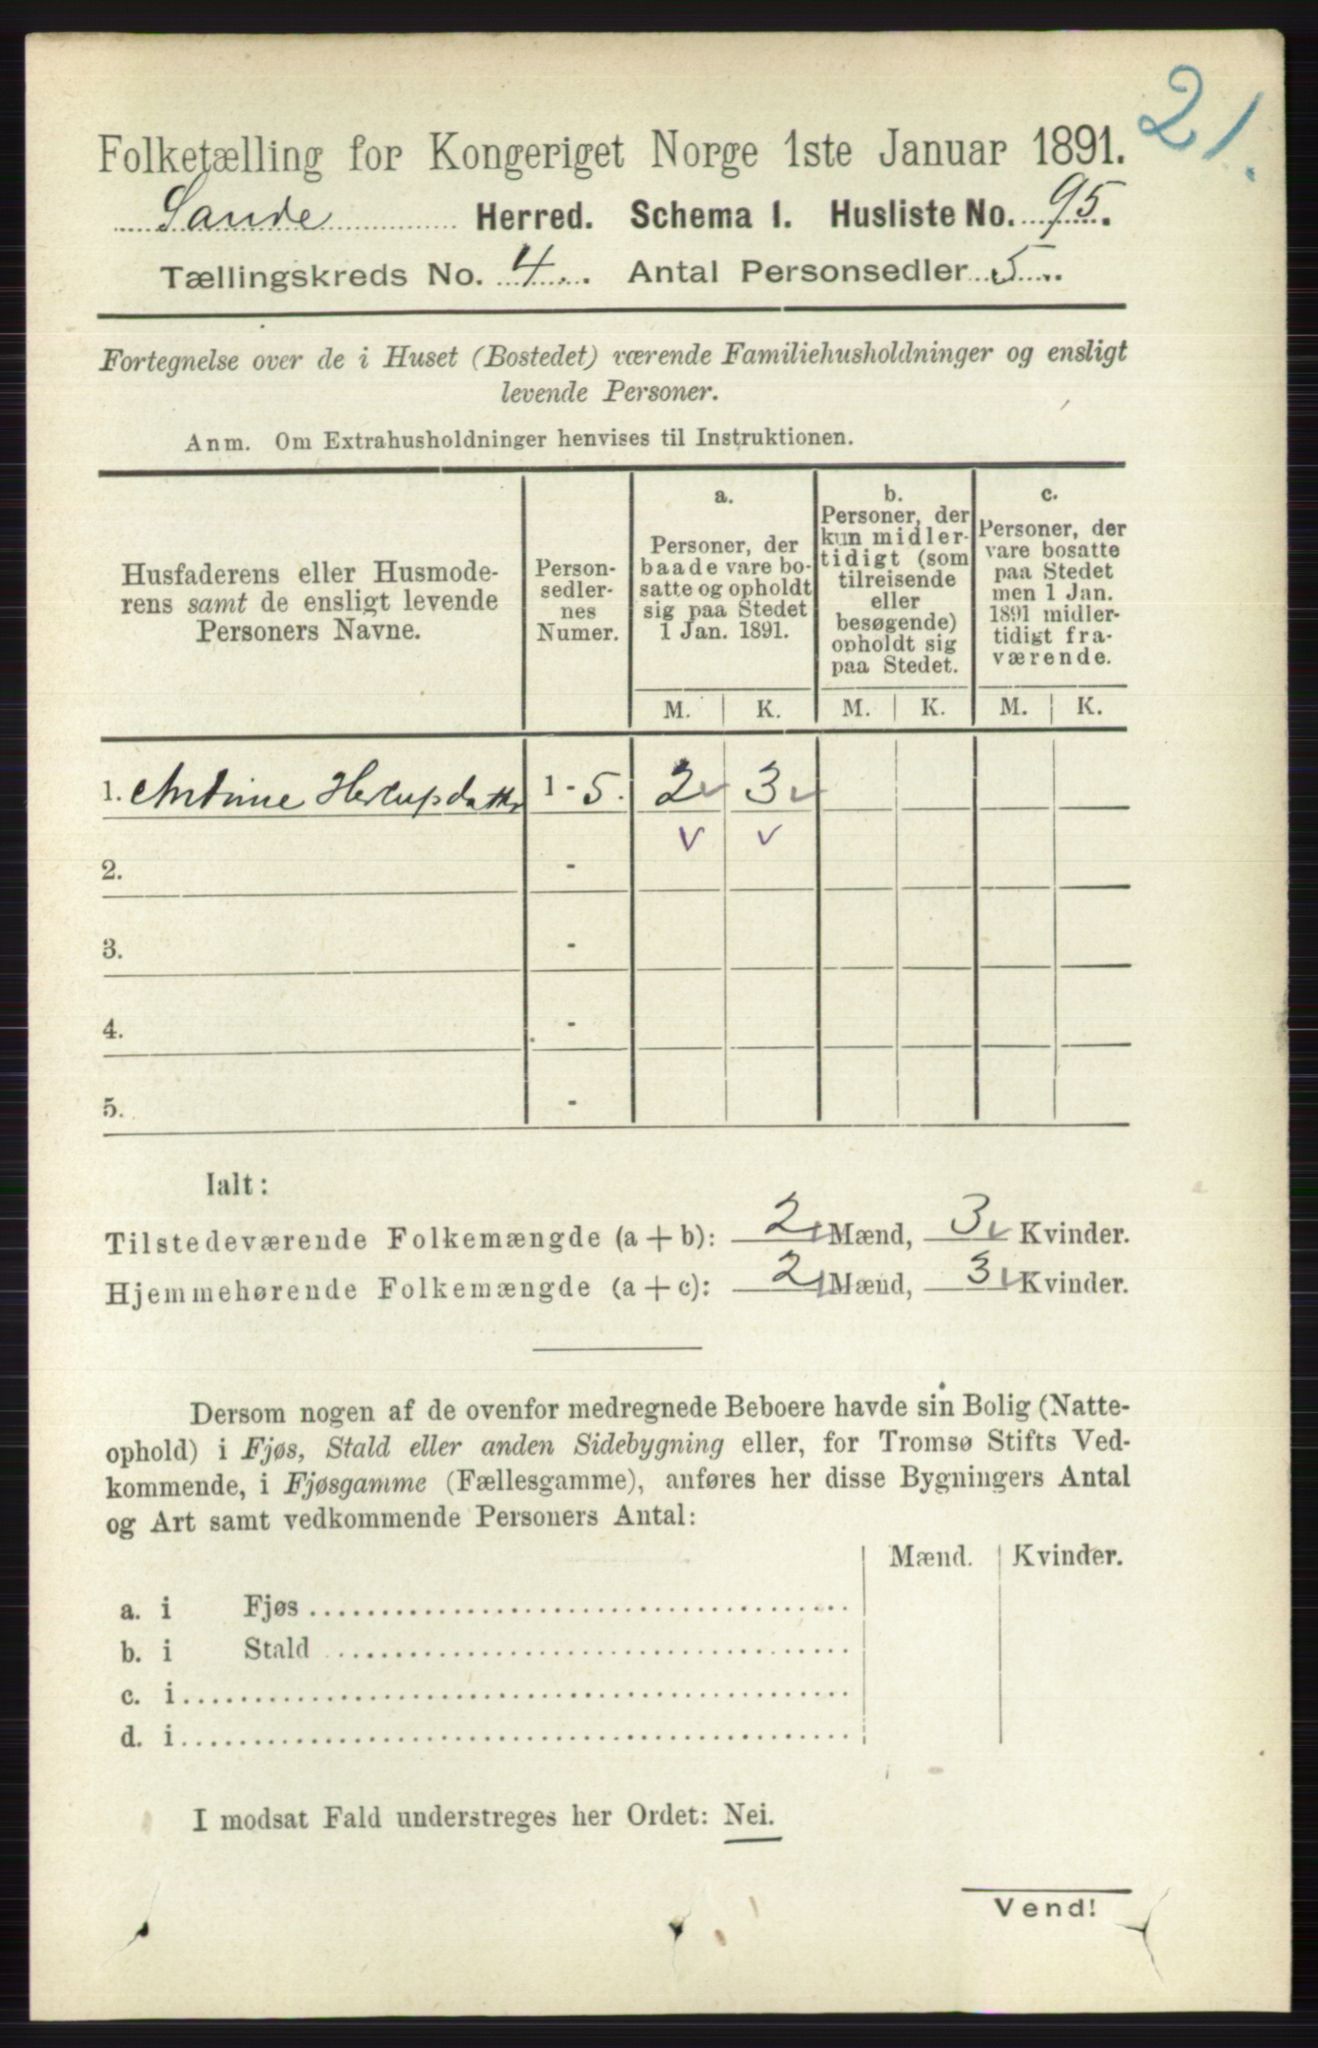 21.
Folketælling for Kongeriget Norge 1ste Januar 1891.
Sande Herred. Schema 1. Husliste No. 95.
Tællingskreds No. 4. Antal Personsedler 5.
Fortegnelse over de i Huset (Bostedet) værende Familiehusholdninger og ensligt
levende Personer.
Anm. Om Extrahusholdninger henvises til Instruktionen.
Husfaderens eller Husmode-
rens samt de ensligt levende
Personers Navne.
Person-
sedler-
nes
Numer.
a.
Personer, der
baade vare bo-
satte og opholdt
sig paa Stedet
1 Jan. 1891.
b.
Personer, der
kun midler-
tidigt (som
tilreisende
eller
besøgende)
opholdt sig
paa Stedet.
c.
Personer, der
vare bosatte
paa Stedet
men 1 Jan.
1891 midler-
tidigt fra-
værende.
M. K. M. K. M. K.
1. Antine 1 - 5. 2 3
2. -
3. -
4. -
5. -
Ialt:
Tilstedeværende Folkemængde (a + b): 2 Mænd, 3 Kvinder.
Hjemmehørende Folkemængde (a + c): 2 Mænd, 3 Kvinder.
Dersom nogen af de ovenfor medregnede Beboere havde sin Bolig (Natte-
ophold) i Fjøs, Stald eller anden Sidebygning eller, for Tromsø Stifts Ved-
kommende, i Fjøsgamme (Fællesgamme), anføres her disse Bygningers Antal
og Art samt vedkommende Personers Antal:
Mænd. Kvinder.
a. i Fjøs
b. i Stald
c. i
d. i
I modsat Fald understreges her Ordet: Nei.
Vend!